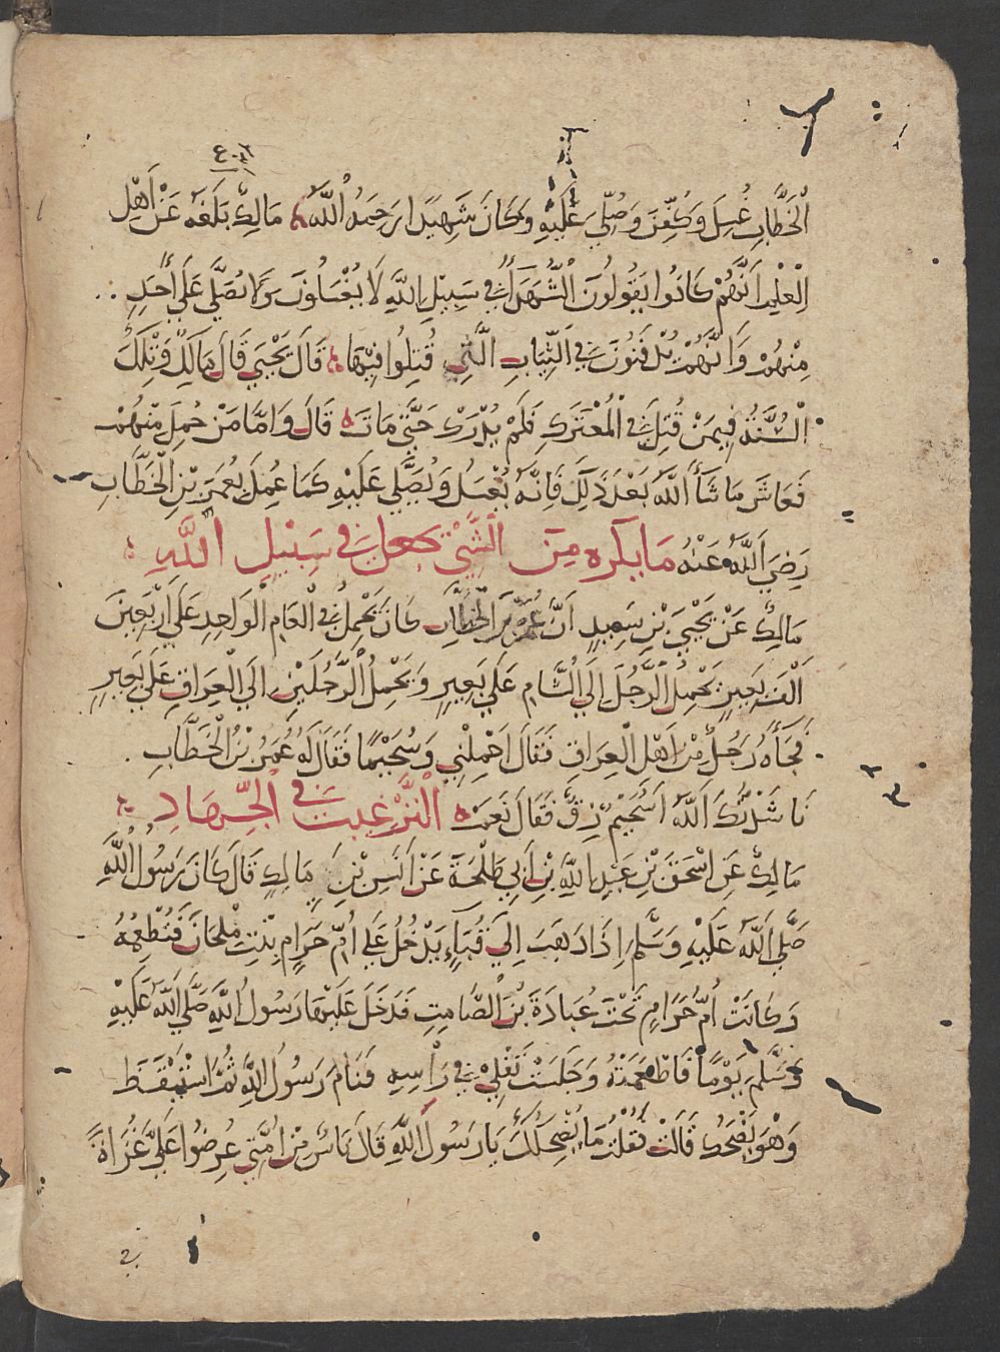 الْخَطَّابِ غُسِلَ وَكُفِّنَ وَصُلِّيَ عَلَيْهِ وَكَانَ شَهِيدًا يَرْحَمُهُ اللَّهُ مَالِكٌ بَلَغَهُ عَنْ أَهْلِ
الْعِلْمِ أَنَّهُمْ كَانُوا يَقُولُونَ الشُّهَدَاءُ فِي سَبِيلِ اللَّهِ لَا يُغْسَلُونَ وَلَا يُصَلَّى عَلَى أَحَدٍ
مِنْهُمْ وَأَنَّهُمْ يُدْفَنُونَ فِي الثِّيَابِ الَّتِي قُتِلُوا فِيهَا قَالَ يَحْيَى قَالَ مَالِكٌ وَتِلْكَ
السُّنَّةُ فِيمَنْ قُتِلَ فِي الْمُعْتَرَكِ فَلَمْ يُدْرَكْ حَتَّى مَاتَ قَالَ وَأَمَّا مَنْ حُمِلَ مِنْهُمْ
فَعَاشَ مَا شَاءَ اللَّهُ بَعْدَ ذَلِكَ فَإِنَّهُ يُغْسَلُ وَيُصَلَّى عَلَيْهِ كَمَا عُمِلَ بِعُمَرَ بْنِ الْخَطَّابِ
رَضِيَ اللَّهُ عَنْهُ مَا يُكْرَهُ مِنَ الشَّيْءِ يُجْعَلُ فِي سَبِيلِ اللَّهِ
مَالِكٌ عَنْ يَحْيَى بْنِ سَعِيدٍ أَنَّ عُمَرَ بْنَ الْخَطَّابِ كَانَ يَحْمِلُ فِي الْعَامِ الْوَاحِدِ عَلَى أَرْبَعِينَ
أَلْفَ بَعِيرٍ يَحْمِلُ الرَّجُلَ إِلَى الشَّامِ عَلَى بَعِيرٍ وَيَحْمِلُ الرَّجُلَيْنِ إِلَى الْعِرَاقِ عَلَى بَعِيرٍ
فَجَاءَهُ رَجُلٌ مِنْ أَهْلِ الْعِرَاقِ فَقَالَ احْمِلْنِي وَسُحَيْمًا فَقَالَ لَهُ عُمَرُ بْنُ الْخَطَّابِ
نَاشَدْتُكَ اللَّهَ أَسُحَيْمٌ زِقٌّ فَقَالَ نَعَمْ التَّرْغِيبُ فِي الْجِهَادِ
مَالِكٌ عَنْ إِسْحَقَ بْنِ عَبْدِ اللَّهِ بْنِ أَبِي طَلْحَةَ عَنْ أَنَسِ بْنِ مَالِكٍ قَالَ كَانَ رَسُولُ اللَّهِ
صَلَّى اللَّهُ عَلَيْهِ وَسَلَّمَ إِذَا ذَهَبَ إِلَى قُبَاءٍ يَدْخُلُ عَلَى أُمِّ حَرَامٍ بِنْتِ مِلْحَانَ فَتُطْعِمُهُ
وَكَانَتْ أُمُّ حَرَامٍ تَحْتَ عُبَادَةَ بْنِ الصَّامِتِ فَدَخَلَ عَلَيْهَا رَسُولُ اللَّهِ صَلَّى اللَّهُ عَلَيْهِ
وَسَلَّمَ يَوْمًا فَأَطْعَمَتْهُ وَجَلَسَتْ تَفْلِي فِي رَأْسِهِ فَنَامَ رَسُولُ اللَّهِ ثُمَّ اسْتَيْقَظَ
وَهُوَ يَضْحَكُ قَالَتْ فَقُلْتُ مَا يُضْحِكُكَ يَا رَسُولَ اللَّهِ قَالَ نَاسٌ مِنْ أُمَّتِي عُرِضُوا عَلَيَّ غُزَاةً